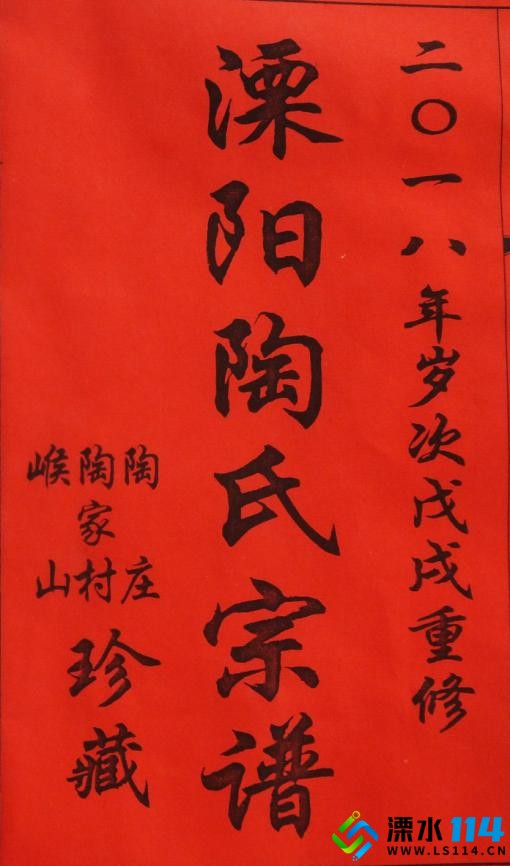 二〇一八年岁次戊戌重修
溧阳陶氏宗谱
陶庄
陶家村
嵠山
珍藏
溧水114
WWW.LS114.CN